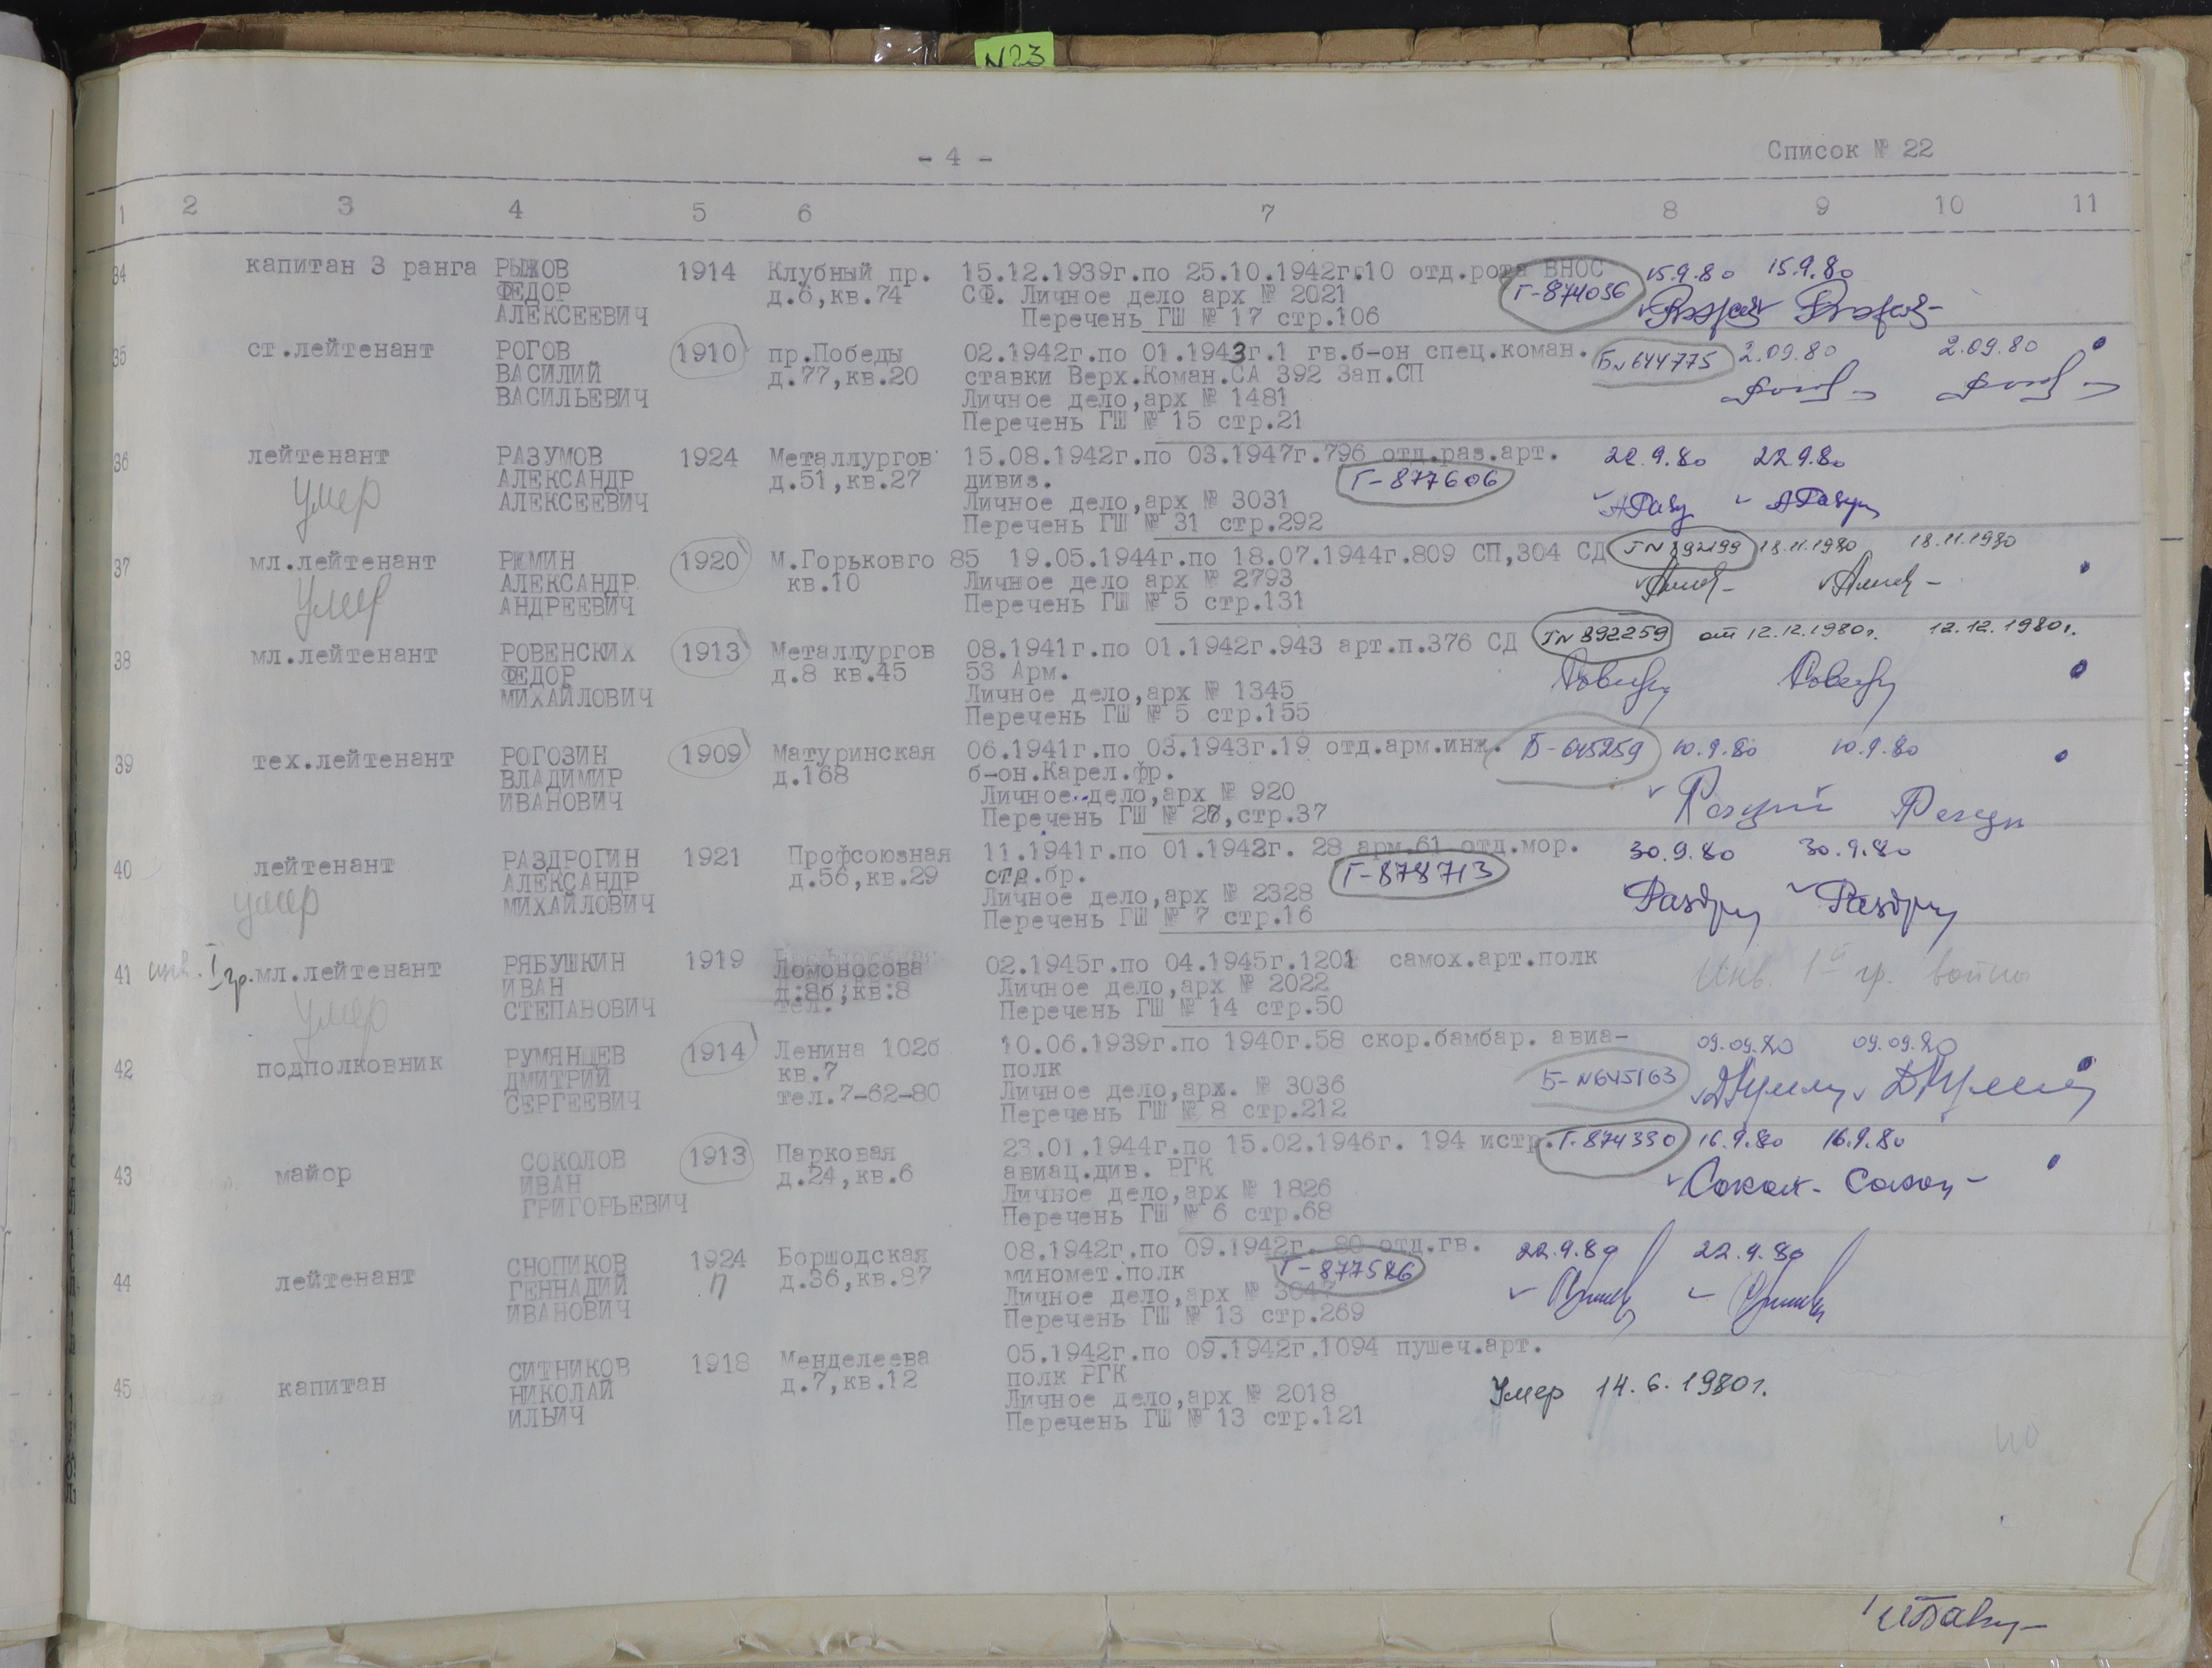 N23
- 4 -
Список № 22
1 2 3 4 5 6 7 8 9 10 11
34 капитан 3 ранга РЫЖОВ 1914 Клубный пр. 15.12.1939г.по 25.10.1942г.10 отд.рота ВНОС 15.9.80 15.9.80
ФЕДОР д.6,кв.74 СФ. Личное дело арх № 2021 Г-874036
АЛЕКСЕЕВИЧ Перечень ГШ № 17 стр.106
35 ст.лейтенант РОГОВ 1910 пр.Победы 02.1942г.по 01.1943г.1 гв.б-он спец.коман. Б№644775 2.09.80 2.09.80
ВАСИЛИЙ д.77,кв.20 ставки Верх.Коман.СА 392 Зап.СП
ВАСИЛЬЕВИЧ Личное дело,арх № 1481
Перечень ГШ № 15 стр.21
36 лейтенант РАЗУМОВ 1924 Металлургов 15.08.1942г.по 03.1947г.796 отд.раз.арт. 22.9.80 22.9.80
умер АЛЕКСАНДР д.51,кв.27 дивиз. Г-877606
АЛЕКСЕЕВИЧ Личное дело,арх № 3031
Перечень ГШ № 31 стр.292
37 мл.лейтенант РЮМИН 1920 М.Горьковго 85 19.05.1944г.по 18.07.1944г.809 СП,304 СД Г№892199 18.11.1980 18.11.1980
умер АЛЕКСАНДР кв.10 Личное дело арх № 2793
АНДРЕЕВИЧ Перечень ГШ № 5 стр.131
38 мл.лейтенант РОВЕНСКИХ 1913 Металлургов 08.1941г.по 01.1942г.943 арт.п.376 СД Г№892259 от 12.12.1980г. 12.12.1980г.
ФЕДОР д.8 кв.45 53 Арм.
МИХАЙЛОВИЧ Личное дело,арх № 1345
Перечень ГШ № 5 стр.155
39 тех.лейтенант РОГОЗИН 1909 Матуринская 06.1941г.по 03.1943г.19 отд.арм.инж. Б-645259 10.9.80 10.9.80
ВЛАДИМИР д.168 б-он.Карел.фр.
ИВАНОВИЧ Личное дело,арх № 920
Перечень ГШ № 26,стр.37
40 лейтенант РАЗДРОГИН 1921 Профсоюзная 11.1941г.по 01.1942г. 28 арм.61 отд.мор. 30.9.80 30.9.80
умер АЛЕКСАНДР д.56,кв.29 стр.бр. Г-878713
МИХАЙЛОВИЧ Личное дело,арх № 2328
Перечень ГШ № 7 стр.16
41 инв. I гр. мл.лейтенант РЯБУШКИН 1919 Ломоносова 02.1945г.по 04.1945г.1201 самох.арт.полк Инв. 1й гр. войны
умер ИВАН д.8б,кв.8 Личное дело,арх № 2022
СТЕПАНОВИЧ тел. Перечень ГШ № 14 стр.50
42 подполковник РУМЯНЦЕВ 1914 Ленина 102б 10.06.1939г.по 1940г.58 скор.бамбар. авиа- 09.09.80 09.09.80
ДМИТРИЙ кв.7 полк Б-№645163
СЕРГЕЕВИЧ тел.7-62-80 Личное дело,арх. № 3036
Перечень ГШ № 8 стр.212
43 майор СОКОЛОВ 1913 Парковая 23.01.1944г.по 15.02.1946г. 194 истр. Г-874330 16.9.80 16.9.80
ИВАН д.24,кв.6 авиац.див. РГК
ГРИГОРЬЕВИЧ Личное дело,арх № 1826
Перечень ГШ № 6 стр.68
44 лейтенант СНОПИКОВ 1924 Боршодская 08.1942г.по 09.1942г. 80 отд.гв. 22.9.80 22.9.80
ГЕННАДИЙ п д.36,кв.87 миномет.полк Г-877586
ИВАНОВИЧ Личное дело,арх № 3047
Перечень ГШ № 13 стр.269
45 капитан СИТНИКОВ 1918 Менделеева 05.1942г.по 09.1942г.1094 пушеч.арт.
НИКОЛАЙ д.7,кв.12 полк РГК Умер 14.6.1980г.
ИЛЬИЧ Личное дело,арх № 2018
Перечень ГШ № 13 стр.121